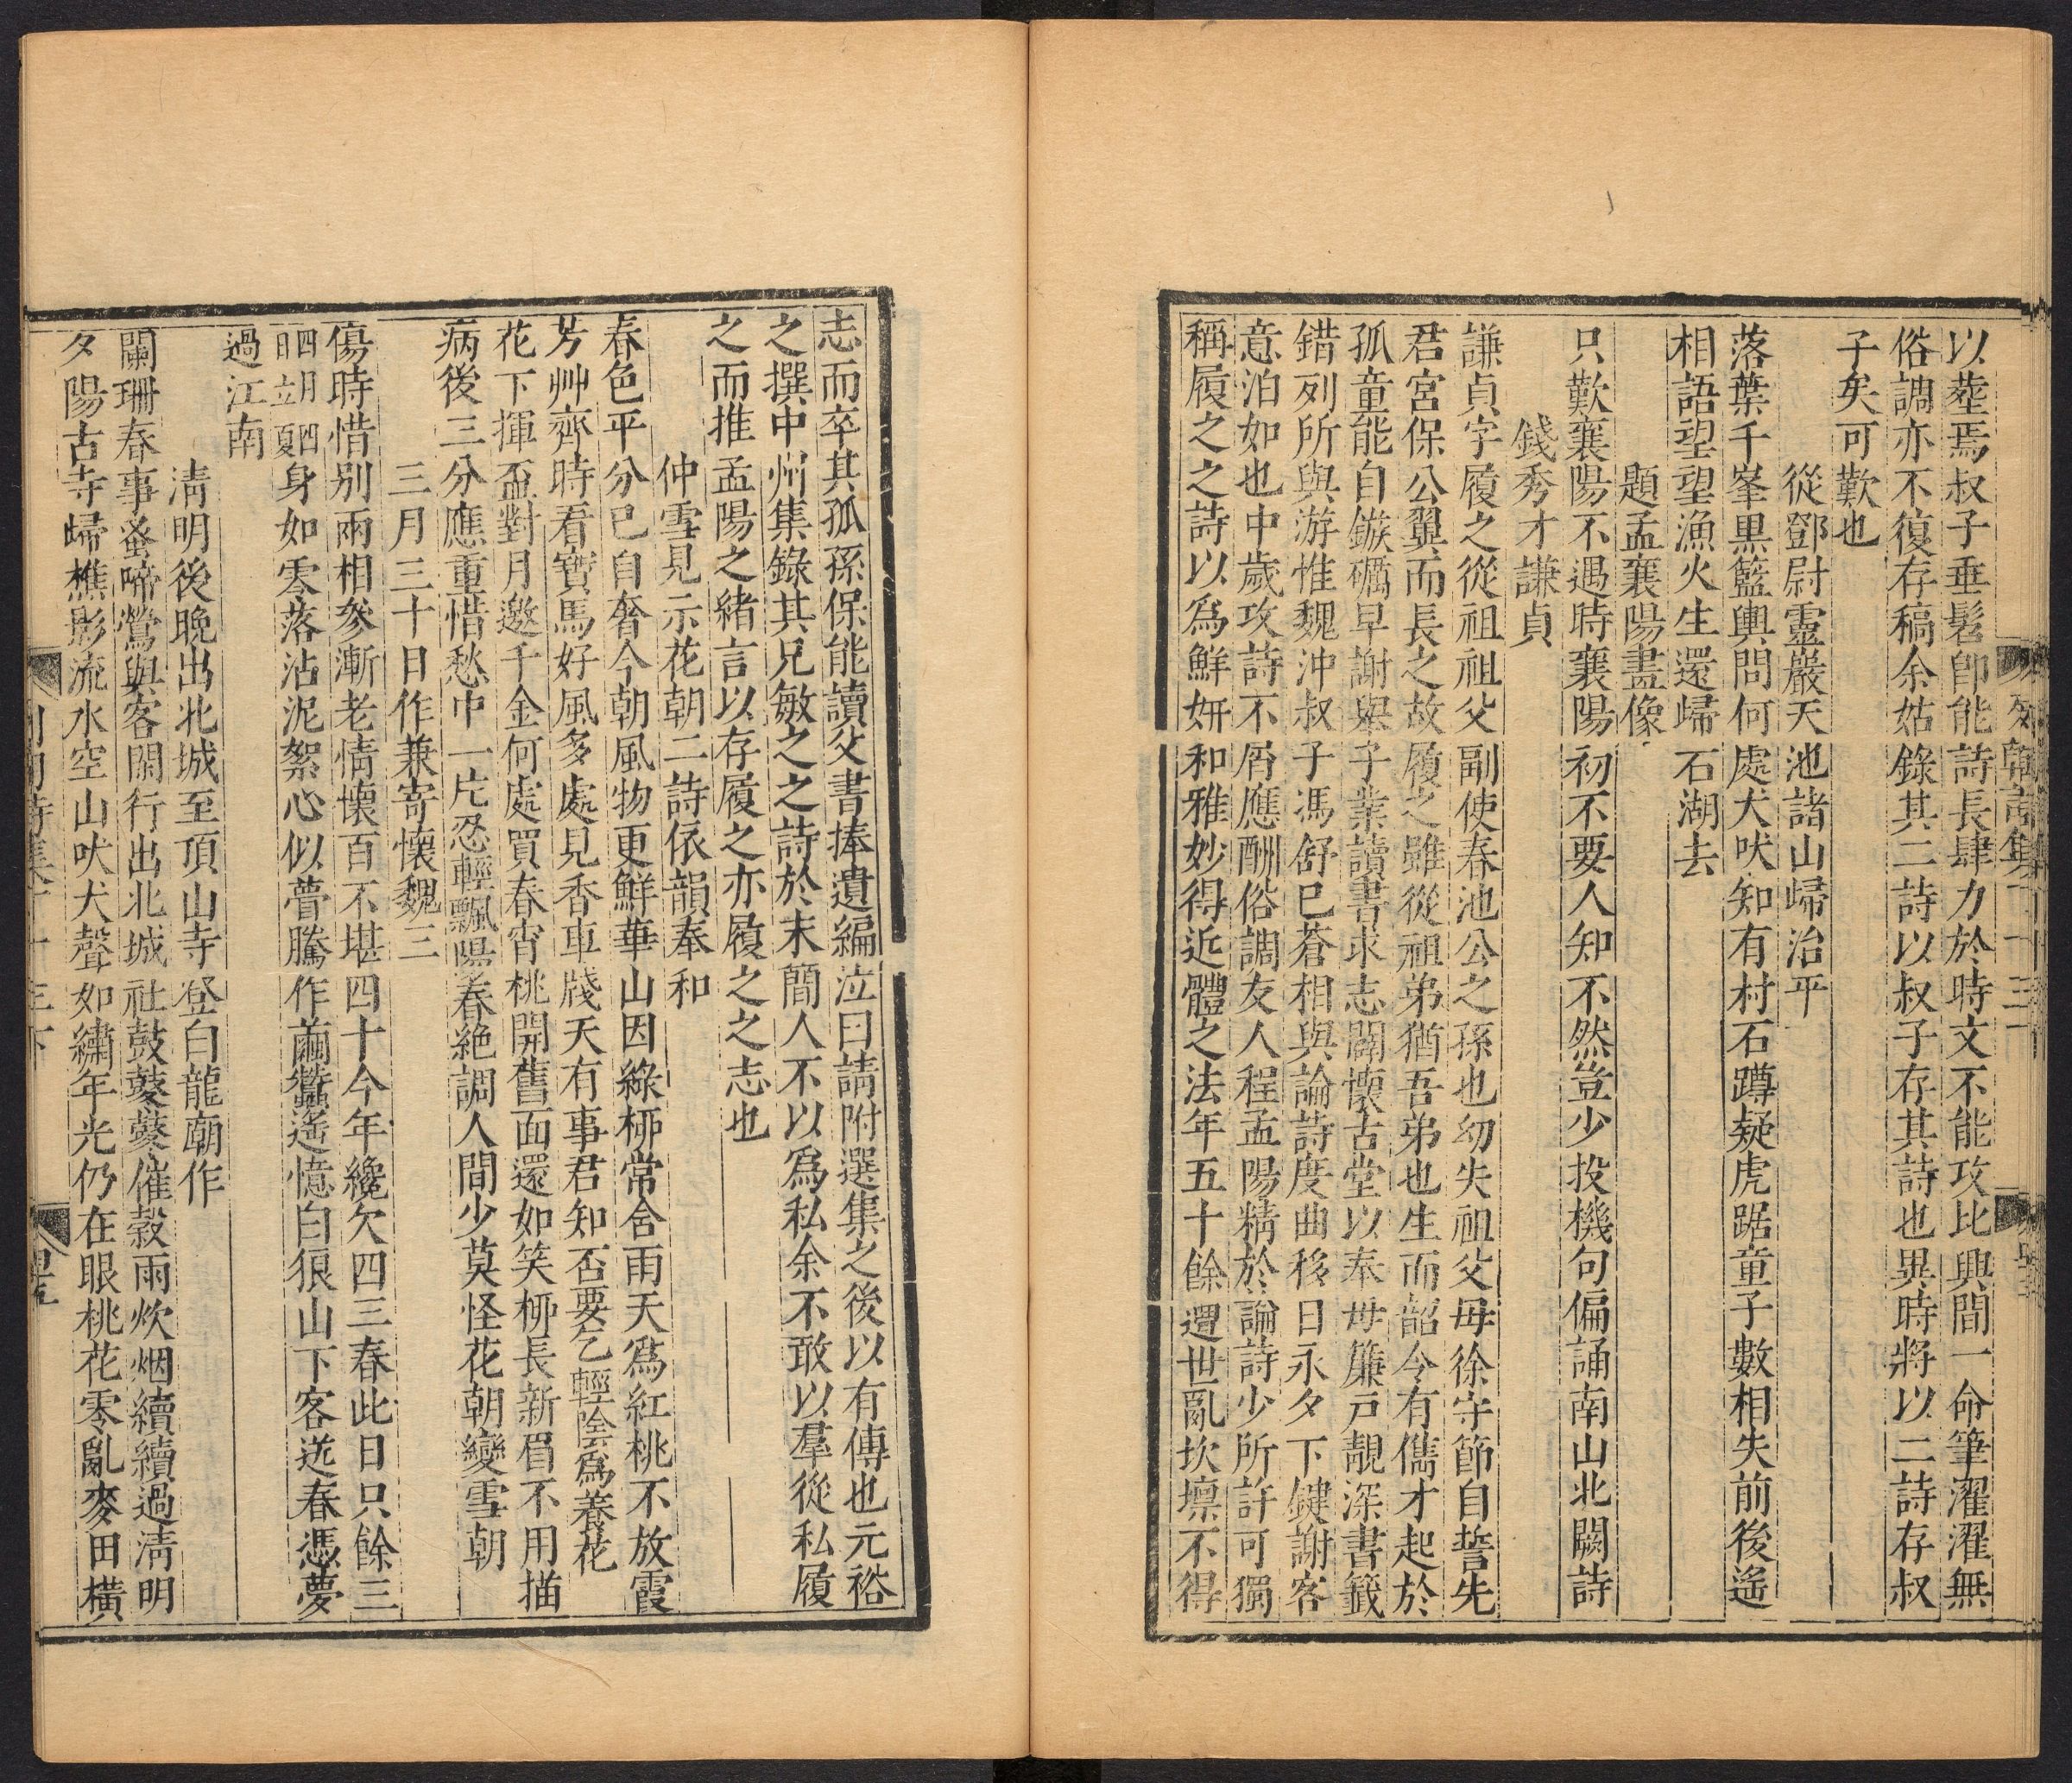 以塟焉叔子垂髫卽能詩長肆力於時文不能攻比興間一命筆濯濯無
俗調亦不復存稿余姑錄其二詩以叔子存其詩也異時將以二詩存叔
子矣可歎也
從鄧尉靈巖天池諸山歸治平
落葉千峯黒籃輿問何處犬吠知有村石蹲疑虎踞童子數相失前後遙
相語望望漁火生還歸石湖去
題孟襄陽畫像
只歎襄陽不遇時襄陽初不要人知不然豈少投機句偏誦南山北闕詩
錢秀才謙貞
謙貞字履之從祖祖父副使春池公之孫也幼失祖父母徐守節自誓先
君宮保公翼而長之故履之雖從祖弟猶吾弟也生而韶令有儁才起於
孤童能自鏃礪早謝舉子業讀書求志闢懷古堂以奉母簾戸靚深書籤
錯列所與游惟魏沖叔子馮舒已蒼相與論詩度曲移日永夕下鍵謝客
意泊如也中歲攻詩不屑應酬俗調友人程孟陽精於論詩少所許可獨
稱履之之詩以爲鮮姸和雅妙得近體之法年五十餘遭世亂坎壈不得
志而卒其孤孫保能讀父書捧遺編泣曰請附選集之後以有傳也元裕
之撰中州集錄其兄敏之之詩於末簡人不以爲私余不敢以羣從私履
之而推孟陽之緒言以存履之亦履之之志也
仲雪見示花朝二詩依韻奉和
春色平分已自奢今朝風物更鮮華山因綠桺常含雨天爲紅桃不放霞
芳艸齊時看寶馬好風多處見香車牋天有事君知否要乞輕陰爲養花
花下揮盃對月邀千金何處買春宵桃開舊面還如笑桺長新眉不用描
病後三分應重惜愁中一片忍輕飄陽春絕調人間少莫怪花朝變雪朝
三月三十日作兼寄懷魏三
傷時惜別兩相參漸老情懷百不堪四十今年纔欠四三春此日只餘三
四月四日立夏身如零落沾泥絮心似瞢騰作繭蠶遙憶白狼山下客送春憑夢
過江南
淸明後晚出北城至頂山寺登白龍廟作
闌珊春事蚤啼鶯與客閒行出北城社鼓鼕鼕催榖雨炊烟續續過淸明
夕陽古寺歸樵影流水空山吠犬聲如繡年光仍在眼桃花零亂麥田橫